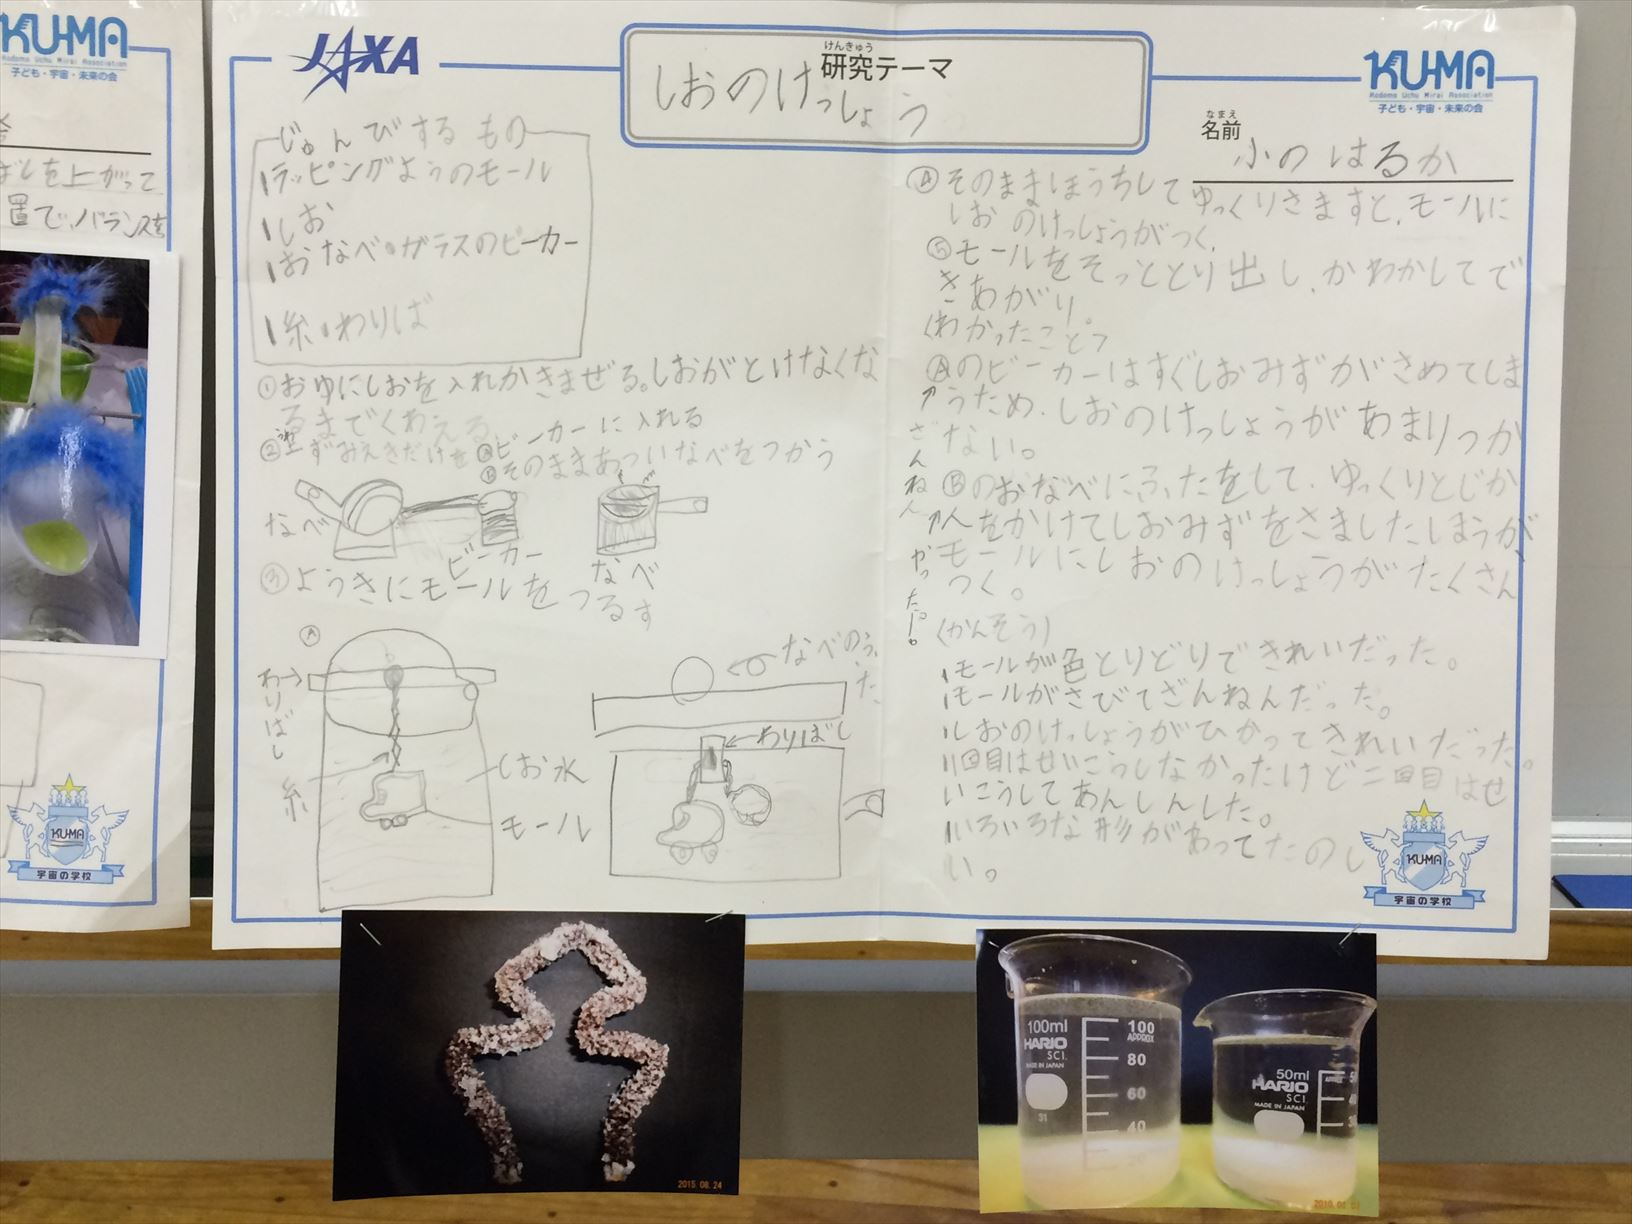 KU-MA
Kodomo Uchu Mirai Association
子ども・宇宙・未来の会
ばしを上がって
置で、バランスを
KU-MA
宇宙の学校
JAXA
けんきゅう
研究テーマ
しおのけっしょう
KU-MA
Kodomo Uchu Mirai Association
子ども・宇宙・未来の会
なまえ
名前
小のはるか
じゅんびするもの
ラッピングようのモール
しお
おなべ・ガラスのビーカー
糸・わりば
①おゆにしおを入れかきまぜる。しおがとけなくな
るまでくわえる
②
ずみえきだけを Ⓐビーカーに入れる
Ⓑそのままあついなべをつかう
なべ
ビーカー
なべ
③ようきにモールをつるす
Ⓐ
わりばし
糸
しお水
モール
なべのふた
わりばし
④そのままほうちしてゆっくりさますと、モールに
しおのけっしょうがつく、
⑤モールをそっととり出し、かわかしてで
きあがり。
〈わかったこと〉
Ⓐのビーカーはすぐしおみずがさめてしま
うため、しおのけっしょうがあまりつか
ない。
ざんねん
Ⓑのおなべにふたをして、ゆっくりとじか
んをかけてしおみずをさましたしほうが
モールにしおのけっしょうがたくさん
つく。
やった。
(かんそう)
モールが色とりどりできれいだった。
モールがさびてざんねんだった。
しおのけっしょうがひかってきれいだった。
1回目はせいこうしなかったけど二回目はせ
いこうしてあんしんした。
いろいろな形がわってたのし
い。
KU-MA
宇宙の学校
2015.08.24
100ml
HARIO
SCI.
MADE IN JAPAN
31
100
APPROX
80
60
40
50ml
HARIO
SCI.
MADE IN JAPAN